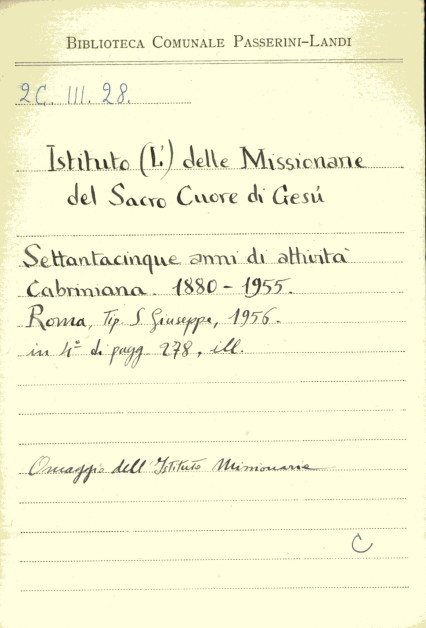 BIBLIOTECA COMUNALE PASSERINI-LANDI
2C. III. 28.
Istituto (L') delle Missionarie
del Sacro Cuore di Gesú
Settantacinque anni di attività
Cabriniana. 1880 - 1955.
Roma, Tip. S. Giuseppe, 1956.
in 4º di pagg. 278, ill.
Omaggio dell'Istituto Missionarie
C